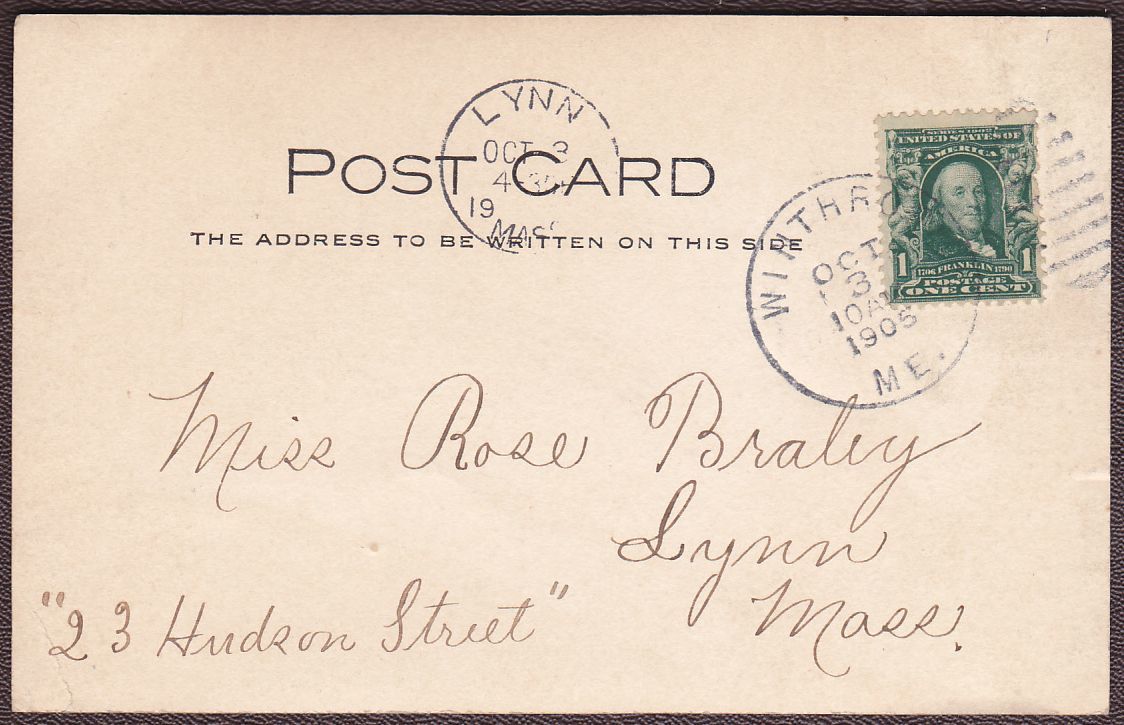 LYNN
OCT 3
4
19
MASS
POST CARD
THE ADDRESS TO BE WRITTEN ON THIS SIDE
SERIES 1902
UNITED STATES OF
AMERICA
1 1706 FRANKLIN 1790 1
POSTAGE
ONE CENT
WINTHRO
OCT
3
10AM
1905
ME.
Miss Rose Braley
Lynn
Mass.
"23 Hudson Street"